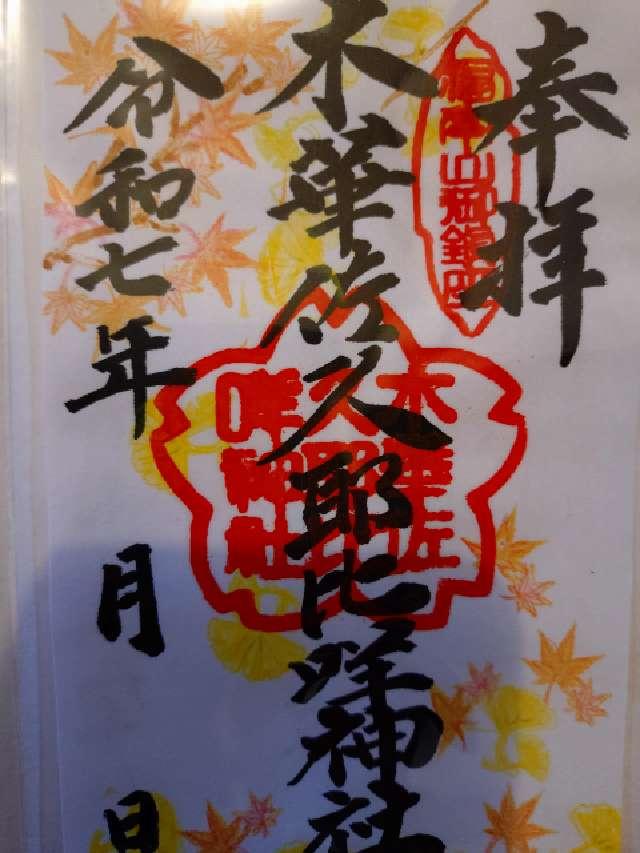 奉拝
福岡山御鎮座
木華佐久耶比咩神社
木華佐
久耶比
咩神社
令和七年 月 日